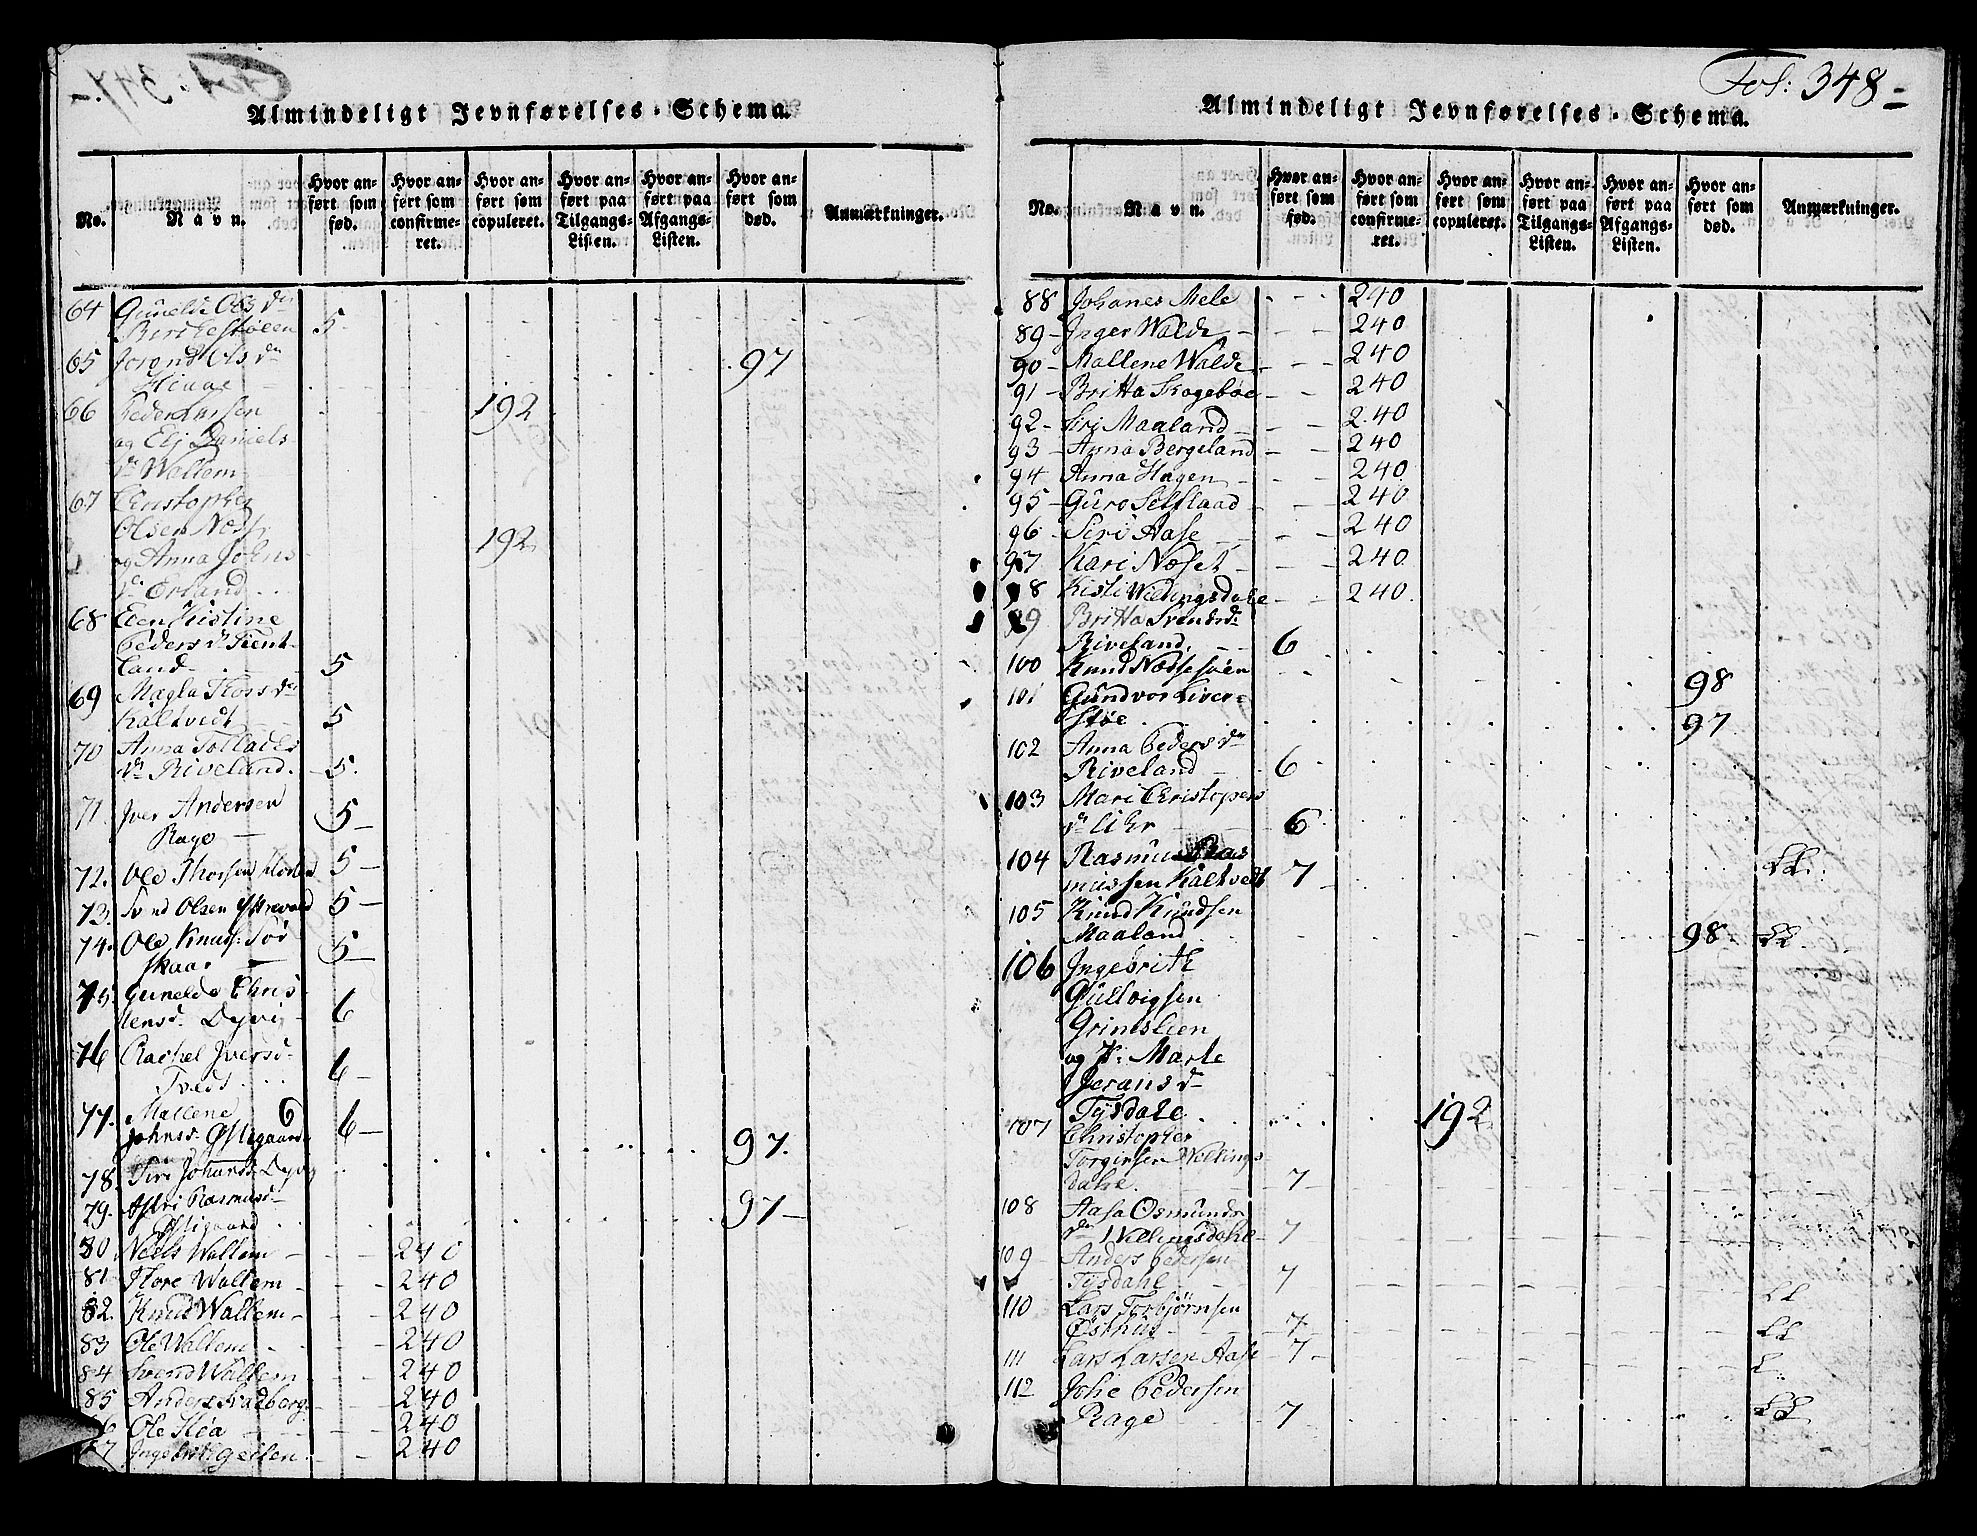 Almindeligt Jevnførelses-Schema.
No. Navn. Hvor anført som fød. Hvor anført som confirmeret. Hvor anført som copuleret. Hvor anført paa Tilgangs-Listen. Hvor anført paa Afgangs-Listen. Hvor anført som død. Anmærkninger.
64 Gunelde Ols dr
5
65 Jorand Ols dr
97
66 Peder Larsen 192
og Eli Daniels
dr Wallem
67 Christopher
Olsen
192
og Anna Johns
dr Erland
68 Een Kistine
Peders dr Tient-
land 5
69 Magla Thors dr
Kaltvedt 5
70 Anna Tollades
dr Riveland. 5.
71. Iver Andersen
Rage 5
72. Ole Thorsen 5
73. Svend Olsen 5
74. Ole Knuds: Tør
skaar 5
75. Gunelde Chris
tensd. Dyvig 6
76 Rachel Iversd.
Tvedt 6
77. Mallene 6
Johnsd. Østigaard 6
78. Siri Johansd. Dyvig 97.
79. Astri Rasmusd.
Østigaard 97
80 Niels Wallem 240
81 Thore Wallem 240
82. Knud Wallem 240
83 Ole Wallem 240
84 Svend Wallem 240
85 Anders Fradberg 240
Ole 240
87 Ingebrit 240
Fol: 348
Almindeligt Jevnførelses-Schema.
No. Navn. Hvor anført som fød. Hvor anført som confirmeret. Hvor anført som copuleret. Hvor anført paa Tilgangs-Listen. Hvor anført paa Afgangs-Listen. Hvor anført som død. Anmærkninger.
88 Johanes Mele 240
89 Inger Walde 240
90 Mallene Walde 240
91 Britta Skogebøe 240
92 Siri Maaland 240
93 Anna Bergeland 240
94 Anna Hagen 240
95 Guro Selflaad 240
96 Siri Aase 240
97 Kari Nøset 240
98 Kisti Wellingsdale 240
99 Britta Svendsdr
Riveland. 6
100 Knud 98
101 Gundvor Livere
støe 97
102 Anna Peders dr
Riveland 6
103 Mari Christopers
dr Lihr 6
104 Rasmus Ras
mussen Kaltvedt 7
105 Knud Knudsen
Maaland 98
106 Ingebrith
Gullvigsen
Grimslien
og P: Marte
Jorans dr
Tysdale 192
107 Christopher
Torgersen Wellings
dale. 7
108 Aasa Osmunds
dr Wellingsdahl 7
109 Anders Pedersen
Tysdahl 7
110 Lars Torbjørnsen
Østhus 7
111 Lars Larsen Aase 7
112 Johe Pedersen
Rage 7